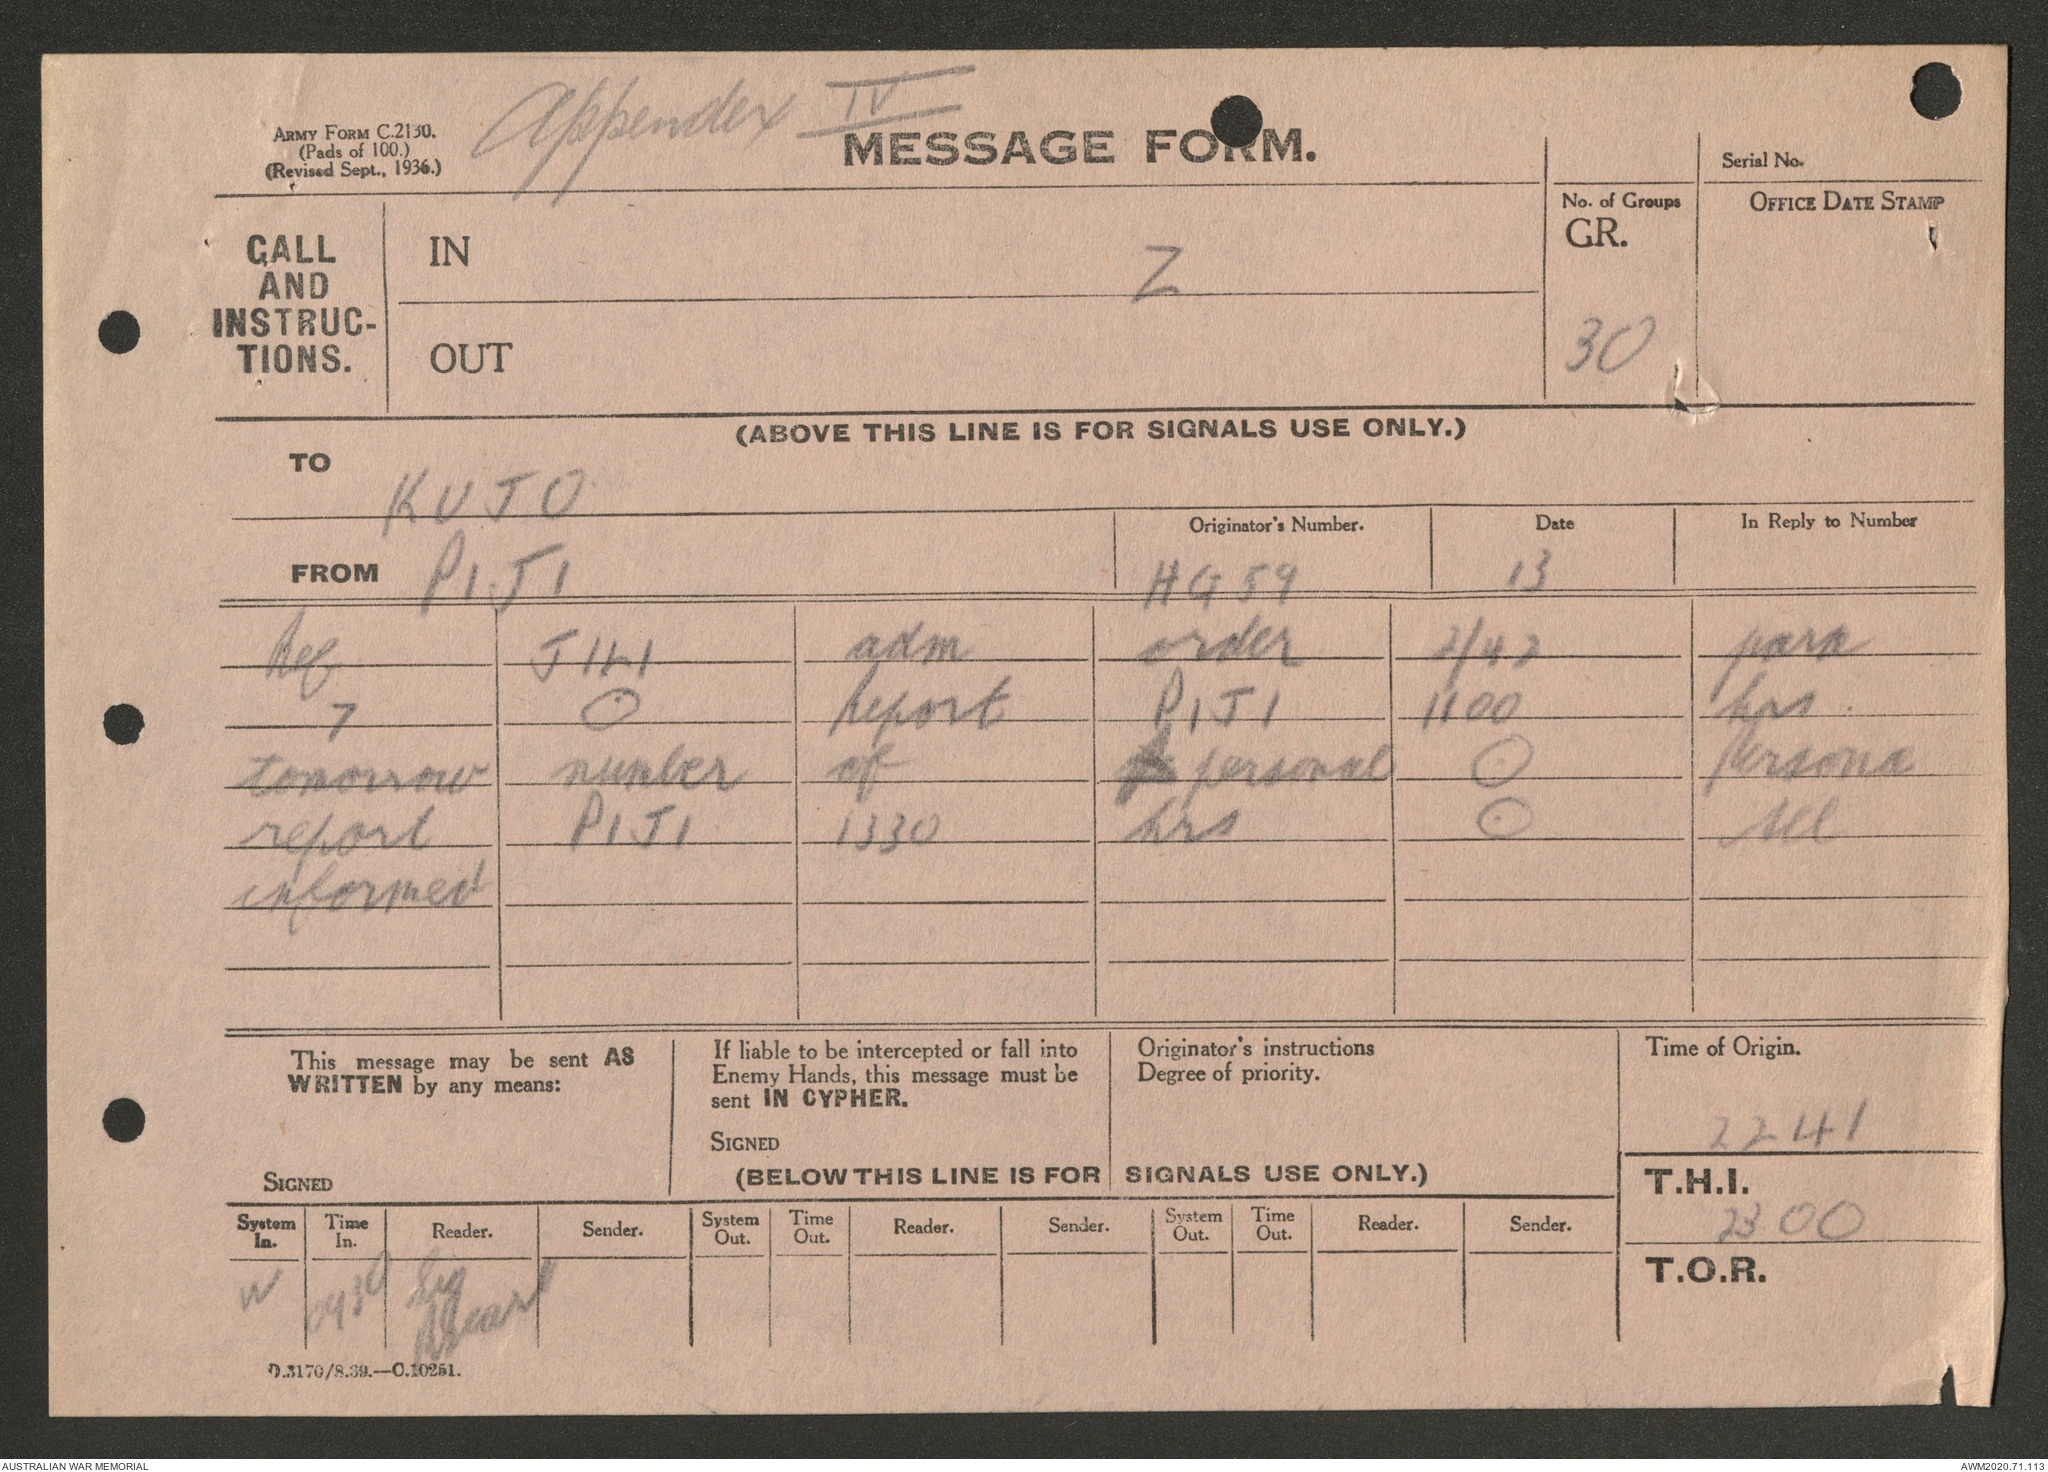 Appendex IV
ARMY FORM C.2130.
(Pads of 100.)
(Revised Sept., 1936.)
MESSAGE FORM.
Serial No.
CALL AND INSTRUC-TIONS.
IN
Z
OUT
No. of Groups
GR.
30
OFFICE DATE STAMP
(ABOVE THIS LINE IS FOR SIGNALS USE ONLY.)
TO KUJO
FROM PIJI
Originator's Number.
HG 59
Date
13
In Reply to Number
Ref JILI adm order 2/42 para
7 O report PIJI 1100 hrs.
tomorrow number of personal O Persona
report PIJI 1330 hrs O All
informed
This message may be sent AS
WRITTEN by any means:
SIGNED
If liable to be intercepted or fall into
Enemy Hands, this message must be
sent IN CYPHER.
SIGNED
Originator's instructions
Degree of priority.
Time of Origin.
2241
(BELOW THIS LINE IS FOR SIGNALS USE ONLY.)
T.H.I.
2300
T.O.R.
System In. Time In. Reader. Sender. System Out. Time Out. Reader. Sender. System Out. Time Out. Reader. Sender.
W 0930
D.3170/8.39.—C.10251.
AUSTRALIAN WAR MEMORIAL
AWM2020.71.113